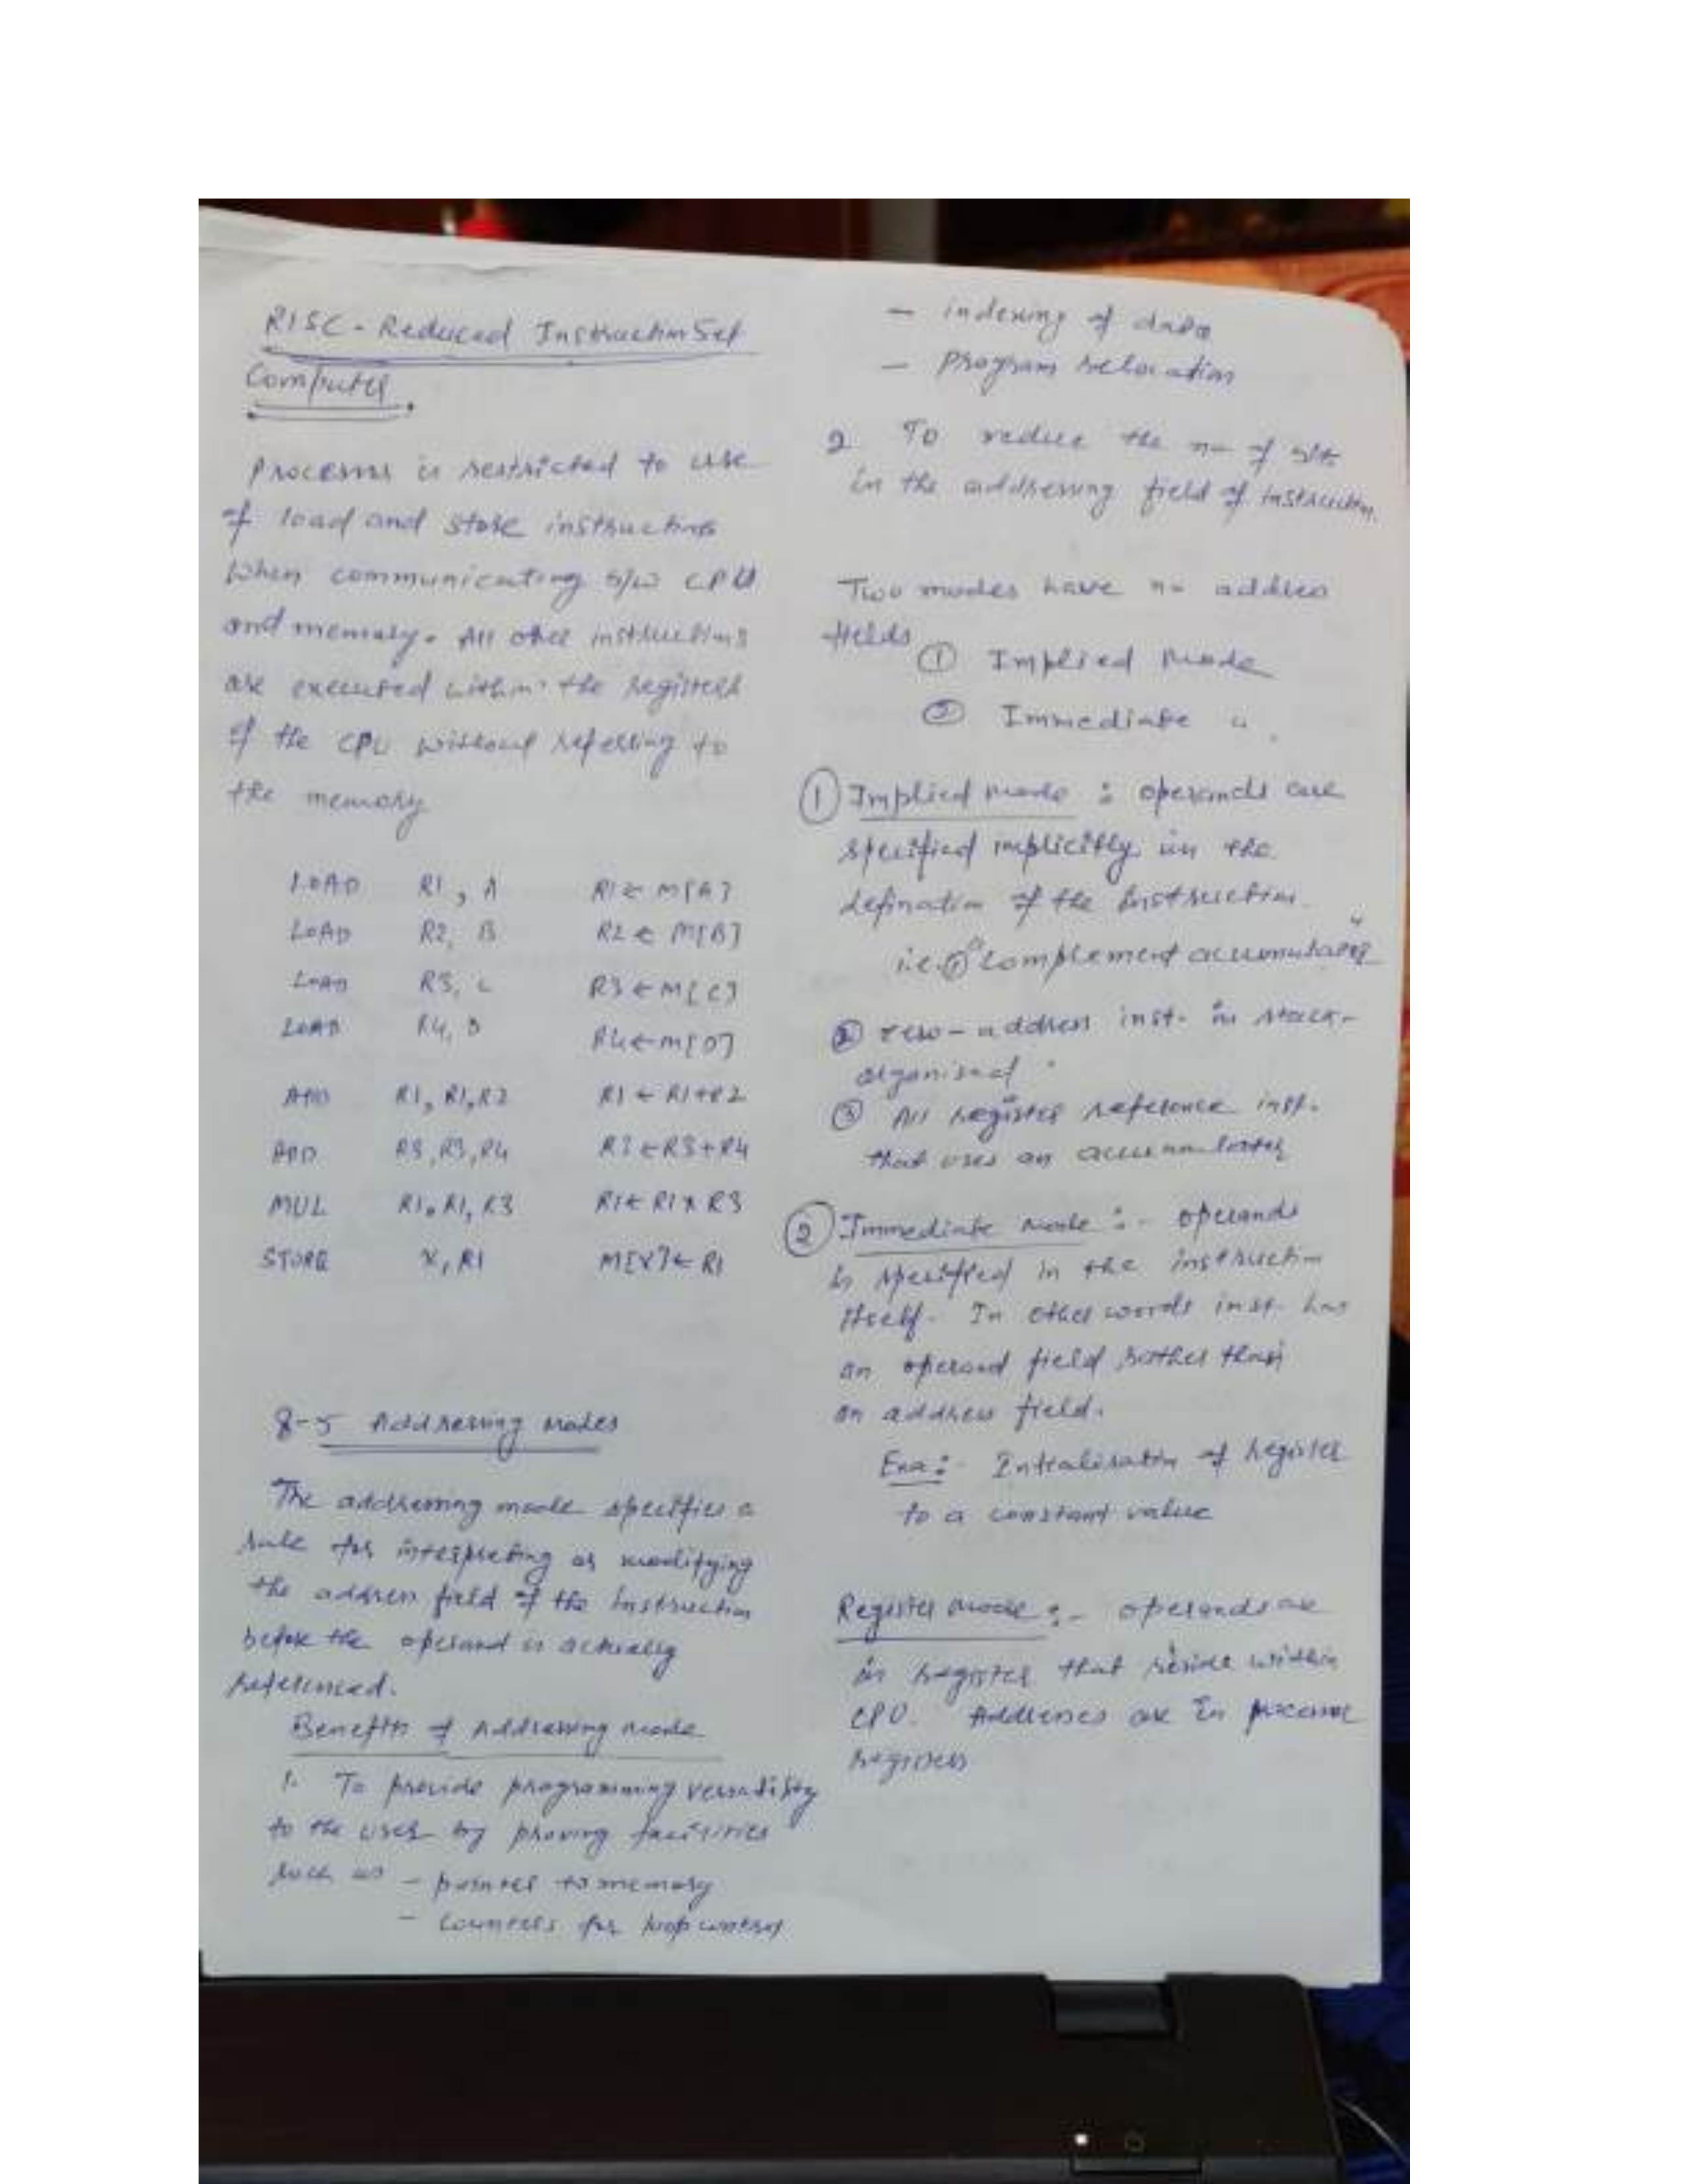 RISC - Reduced Instruction Set
Computer.
Processor is restricted to use
of load and store instructions
when communicating b/w CPU
and memory. All other instructions
are executed within the registers
of the CPU without referring to
the memory
LOAD R1, A R1 ← M[A]
LOAD R2, B R2 ← M[B]
LOAD R3, C R3 ← M[C]
LOAD R4, D R4 ← M[D]
ADD R1, R1, R2 R1 ← R1+R2
ADD R3, R3, R4 R3 ← R3+R4
MUL R1, R1, R3 R1 ← R1 * R3
STORE X, R1 M[X] ← R1
8-5 Addressing modes
The addressing mode specifies a
rule for interpreting or modifying
the address field of the Instruction
before the operand is actually
referenced.
Benefits of Addressing mode
1. To provide programming versatility
to the user by proving facilities
such as - pointer to memory
- counters for loop control
- indexing of data
- program relocation
2 To reduce the no of bits
in the addressing field of instruction.
Two modes have no address
fields
① Implied Mode
② Immediate "
① Implied mode : operands are
specified implicitly in the
defination of the Instruction.
i.e. ① "complement accumulator"
② zero-address inst. in stack-
organised
③ All register reference inst.
that uses an accumulator
② Immediate mode :- operands
is specified in the instruction
itself. In other words inst. has
an operand field rather than
an address field.
Exa:- Intialisation of register
to a constant value
Register mode :- operands are
in register that reside within
CPU. Addresses are in processor
registers